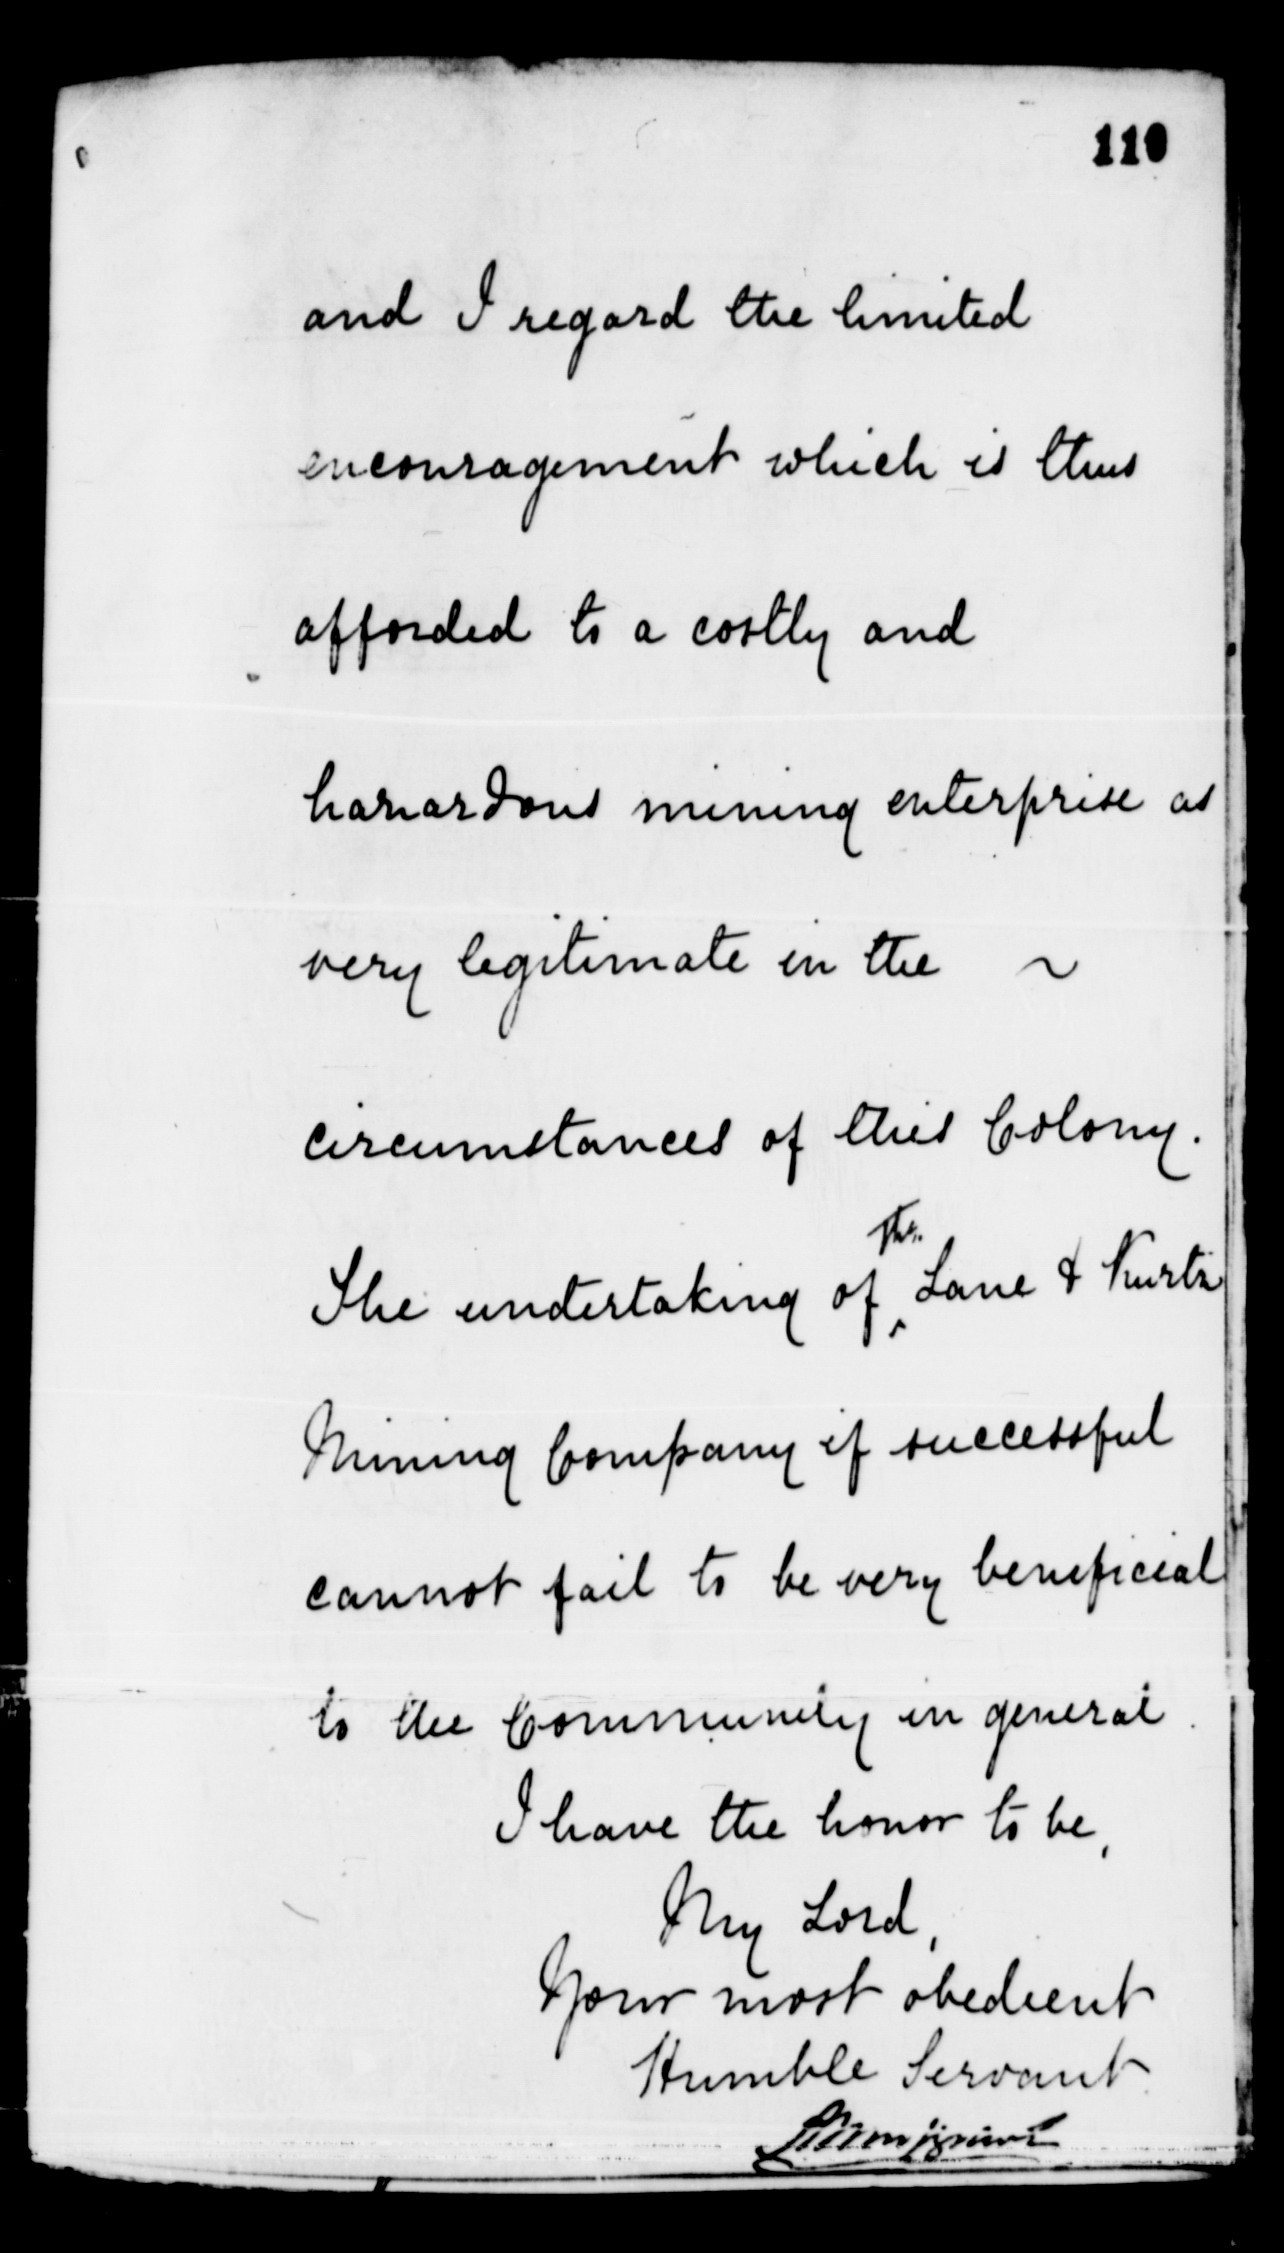 110
and I regard the limited
encouragement which is thus
afforded to a costly and
hazardous mining enterprise as
very legitimate in the ~
circumstances of this Colony.
The undertaking of the Lane & Kurtz
Mining Company if successful
cannot fail to be very beneficial
to the Community in general.
I have the honor to be,
My Lord,
Your most obedient
Humble Servant